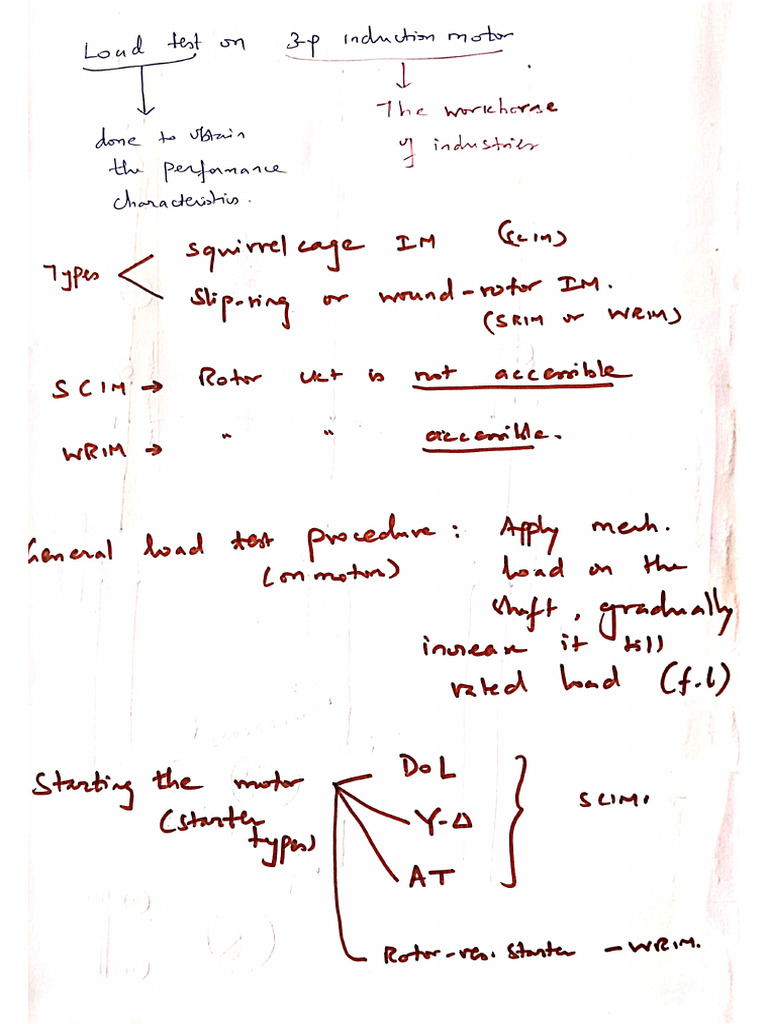 Load test on 3-p induction motor
done to obtain
the performance
characteristics.
The workhorse
of industries
Types
Squirrel cage IM (SCIM)
Slip-ring or wound-rotor IM.
(SRIM or WRIM)
SCIM → Rotor ckt is not accessible
WRIM → " " accessible.
General load test procedure : Apply mech.
(on motors) load on the
shaft, gradually
increase it till
rated load (f.l)
Starting the motor
(starter
types)
DOL
Y-Δ
AT
SCIM.
Rotor-res. Starter - WRIM.